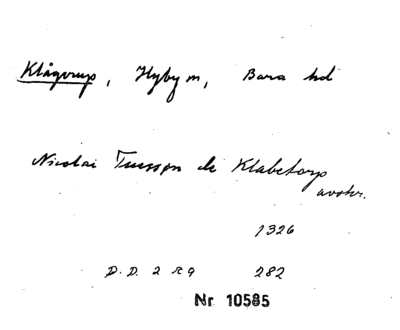 Klågerup, Hyby sn, Bara hd
Nicolai Tuesson de Klabetorp
avskr.
1326
D.D. 2 R 9 282
Nr 10585